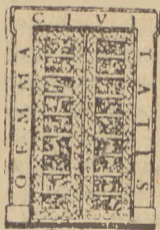 GEMMA
CIVI
TATIS